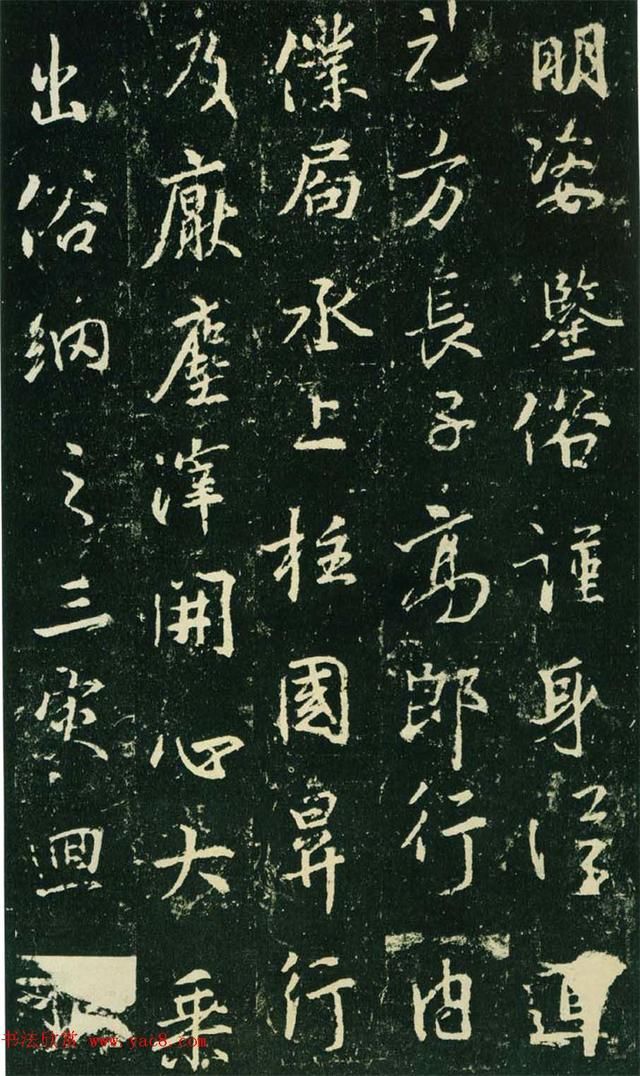 明姿鑒俗謹身
元方長子高郎行内
僕局丞上柱國昇行
及厭塵滓開心大乘
出俗網之三灾迴
书法欣赏 www.yac8.com